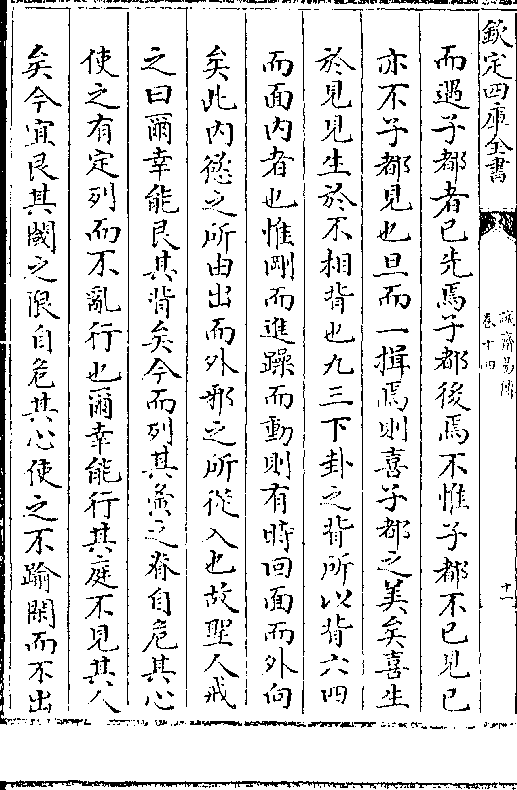 欽定四庫全書
誠齋易傳
卷十四
十一
而遇子都者已先焉子都後焉不惟子都不已見已
亦不子都見也旦而一揖焉則喜子都之美矣喜生
於見見生於不相背也九三下卦之背所以背六四
而面內者也惟剛而進躁而動則有時回面而外向
矣此內慾之所由出而外邪之所從入也故聖人戒
之曰爾幸能艮其背矣今而列其夤之脊自危其心
使之有定列而不亂行也爾幸能行其庭不見其人
矣今宜艮其閾之限自危其心使之不踰閑而不出